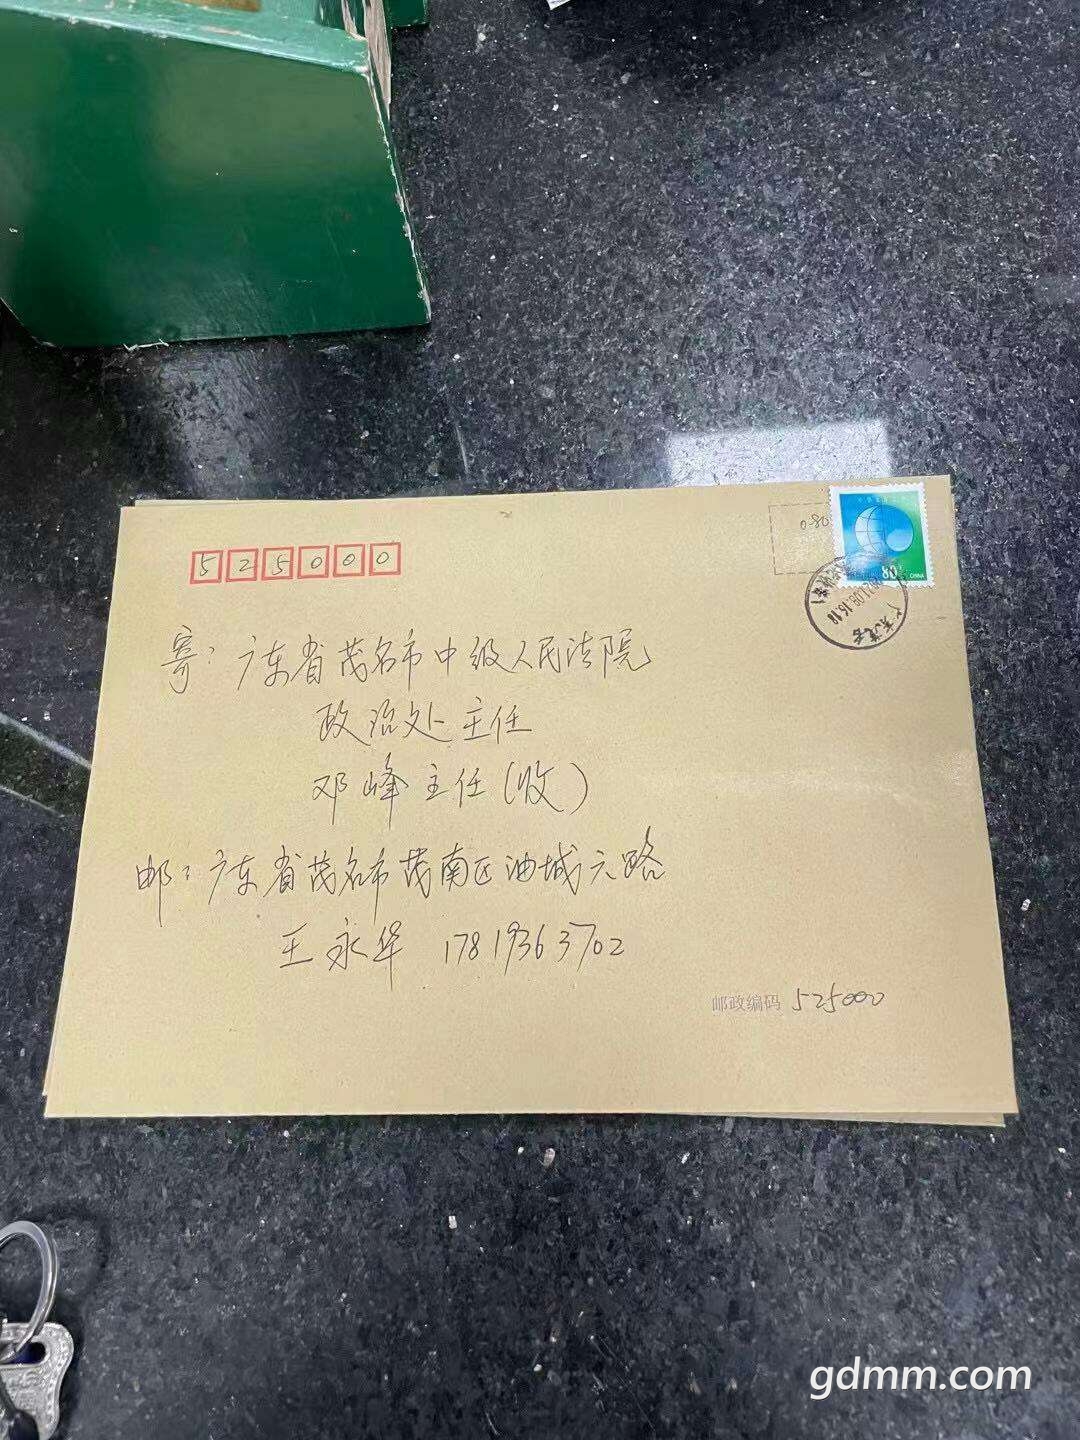 0.80
80
CHINA
525000
寄：广东省茂名市中级人民法院
政治处主任
邓峰主任(收)
邮：广东省茂名市茂南区油城六路
王永华 17819363702
邮政编码 525000
gdmm.com